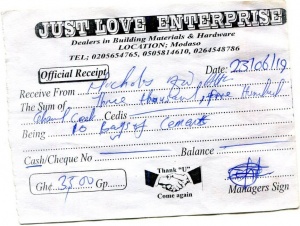 JUST LOVE ENTERPRISE
Dealers in Building Materials & Hardware
LOCATION; Modaso
TEL; 0205654765, 0505814610, 0264548786
Official Receipt
Date: 23/06/19
Receive From Nicholas
The Sum of Three Hundred
Cedis
Being 10 Bags of Cement
Cash/Cheque No
Balance
Thank "U"
Come again
Ghe
Gp
Managers Sign